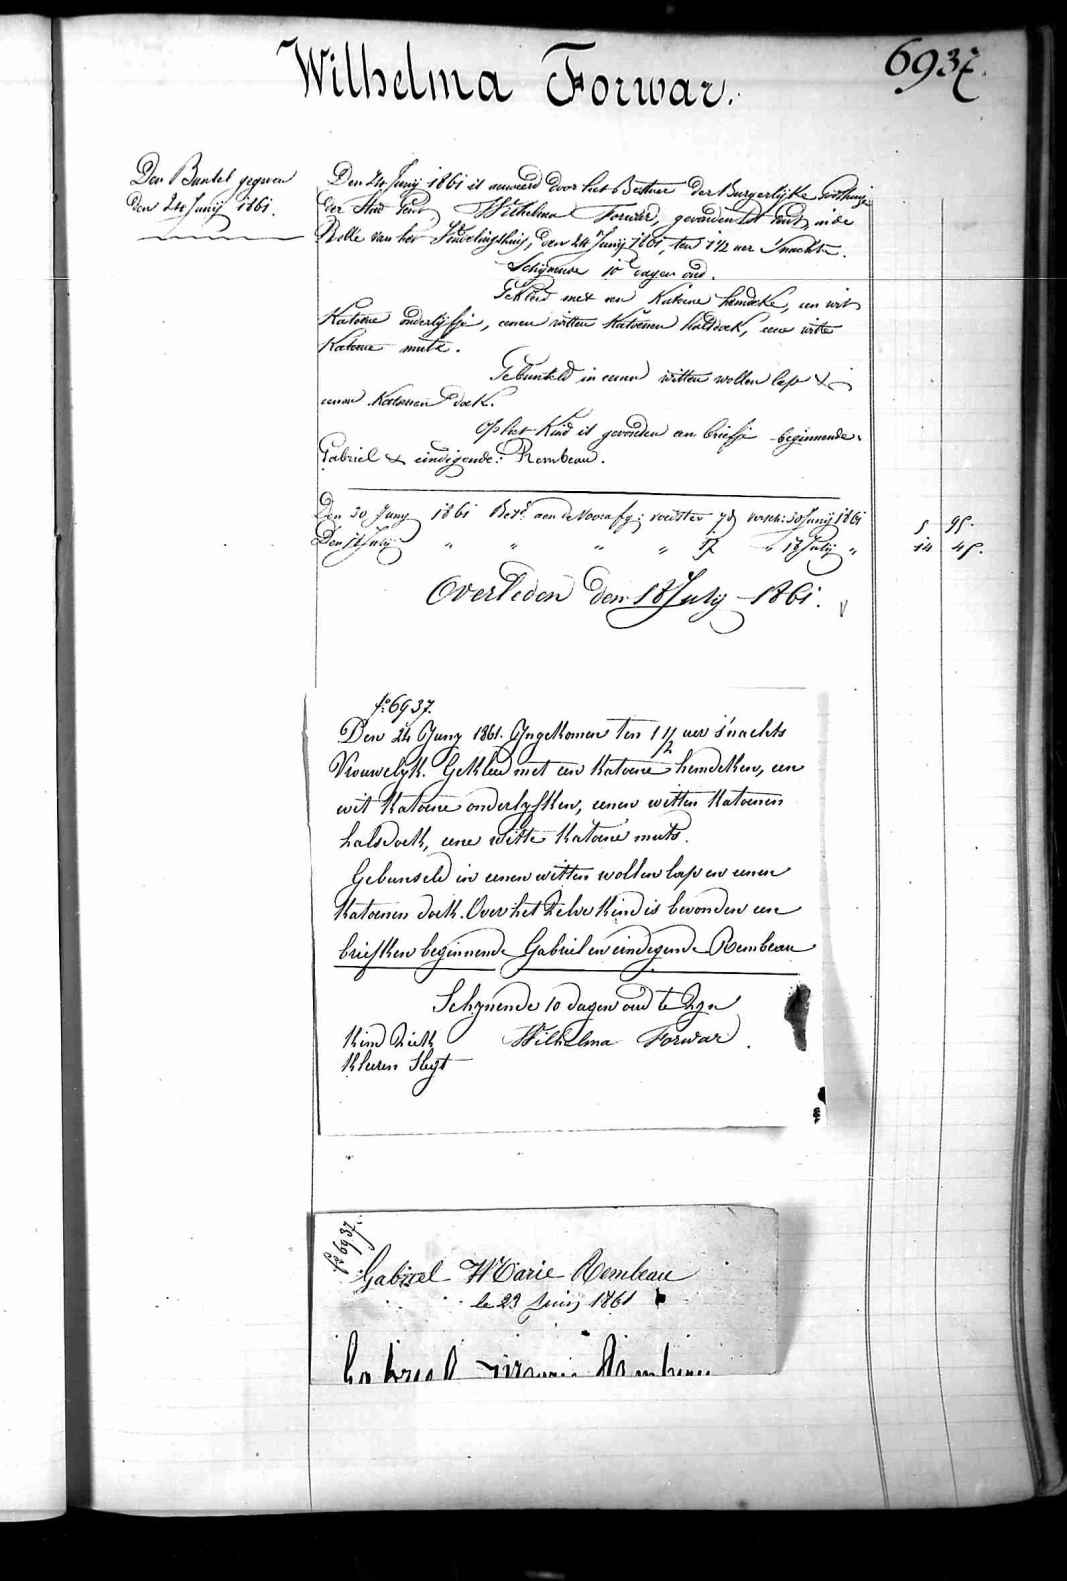 Wilhelma Forwar.
6937.
Den Buntel gegeven
den 24 Junij 1861.
Den 24 Junij 1861 is aenveerd door het Bestuer der Burgerlijke Godshuizen
der Stad Gent, Wilhelma Forwar, gevonden tot Gent, in de
Rolle van het Vindelingshuis, den 24 Junij 1861, ten 1 1/2 uer s'nachts.
Schijnende 10 dagen oud.
Gekleed met een Katoene hemdeke, een wit
Katoene onderlijfje, eenen witten Katoenen halsdoek, eene witte
Katoene muts.
Gebunseld in eenen witten wollen lap &
eenen Katoenen doek.
Op het Kind is gevonden een briefje beginnende:
Gabriel & eindigende: Rembeau.
Den 30 Juny 1861 Bet.d aen de Voorafg: voedster 7 d versch: 30 Junij 1861 5 95.
Den 18 July " " " " 17 " 18 July " 14 45.
Overleden den 18 July 1861.
f.o 6937.
Den 24 Juny 1861. Ingekomen ten 1 1/2 uer s'nachts
Vrouwelyk. Gekleed met een Katoene hemdeken, een
wit Katoene onderlyfken, eenen witten Katoenen
halsdoek, eene witte Katoene muts.
Gebunseld in eenen witten wollen lap en eenen
Katoenen doek. Over het Zelve Kind is bevonden een
briefken beginnende Gabriel en eindigende Rembeau
Schynende 10 dagen oud te Zyn
Kind Ziek Wilhelma Forwar.
Kleeren Slegt
f.o 6937.
Gabriel Marie Rembeau
le 23 Juin 1861
Gabriel Marie Rembeau